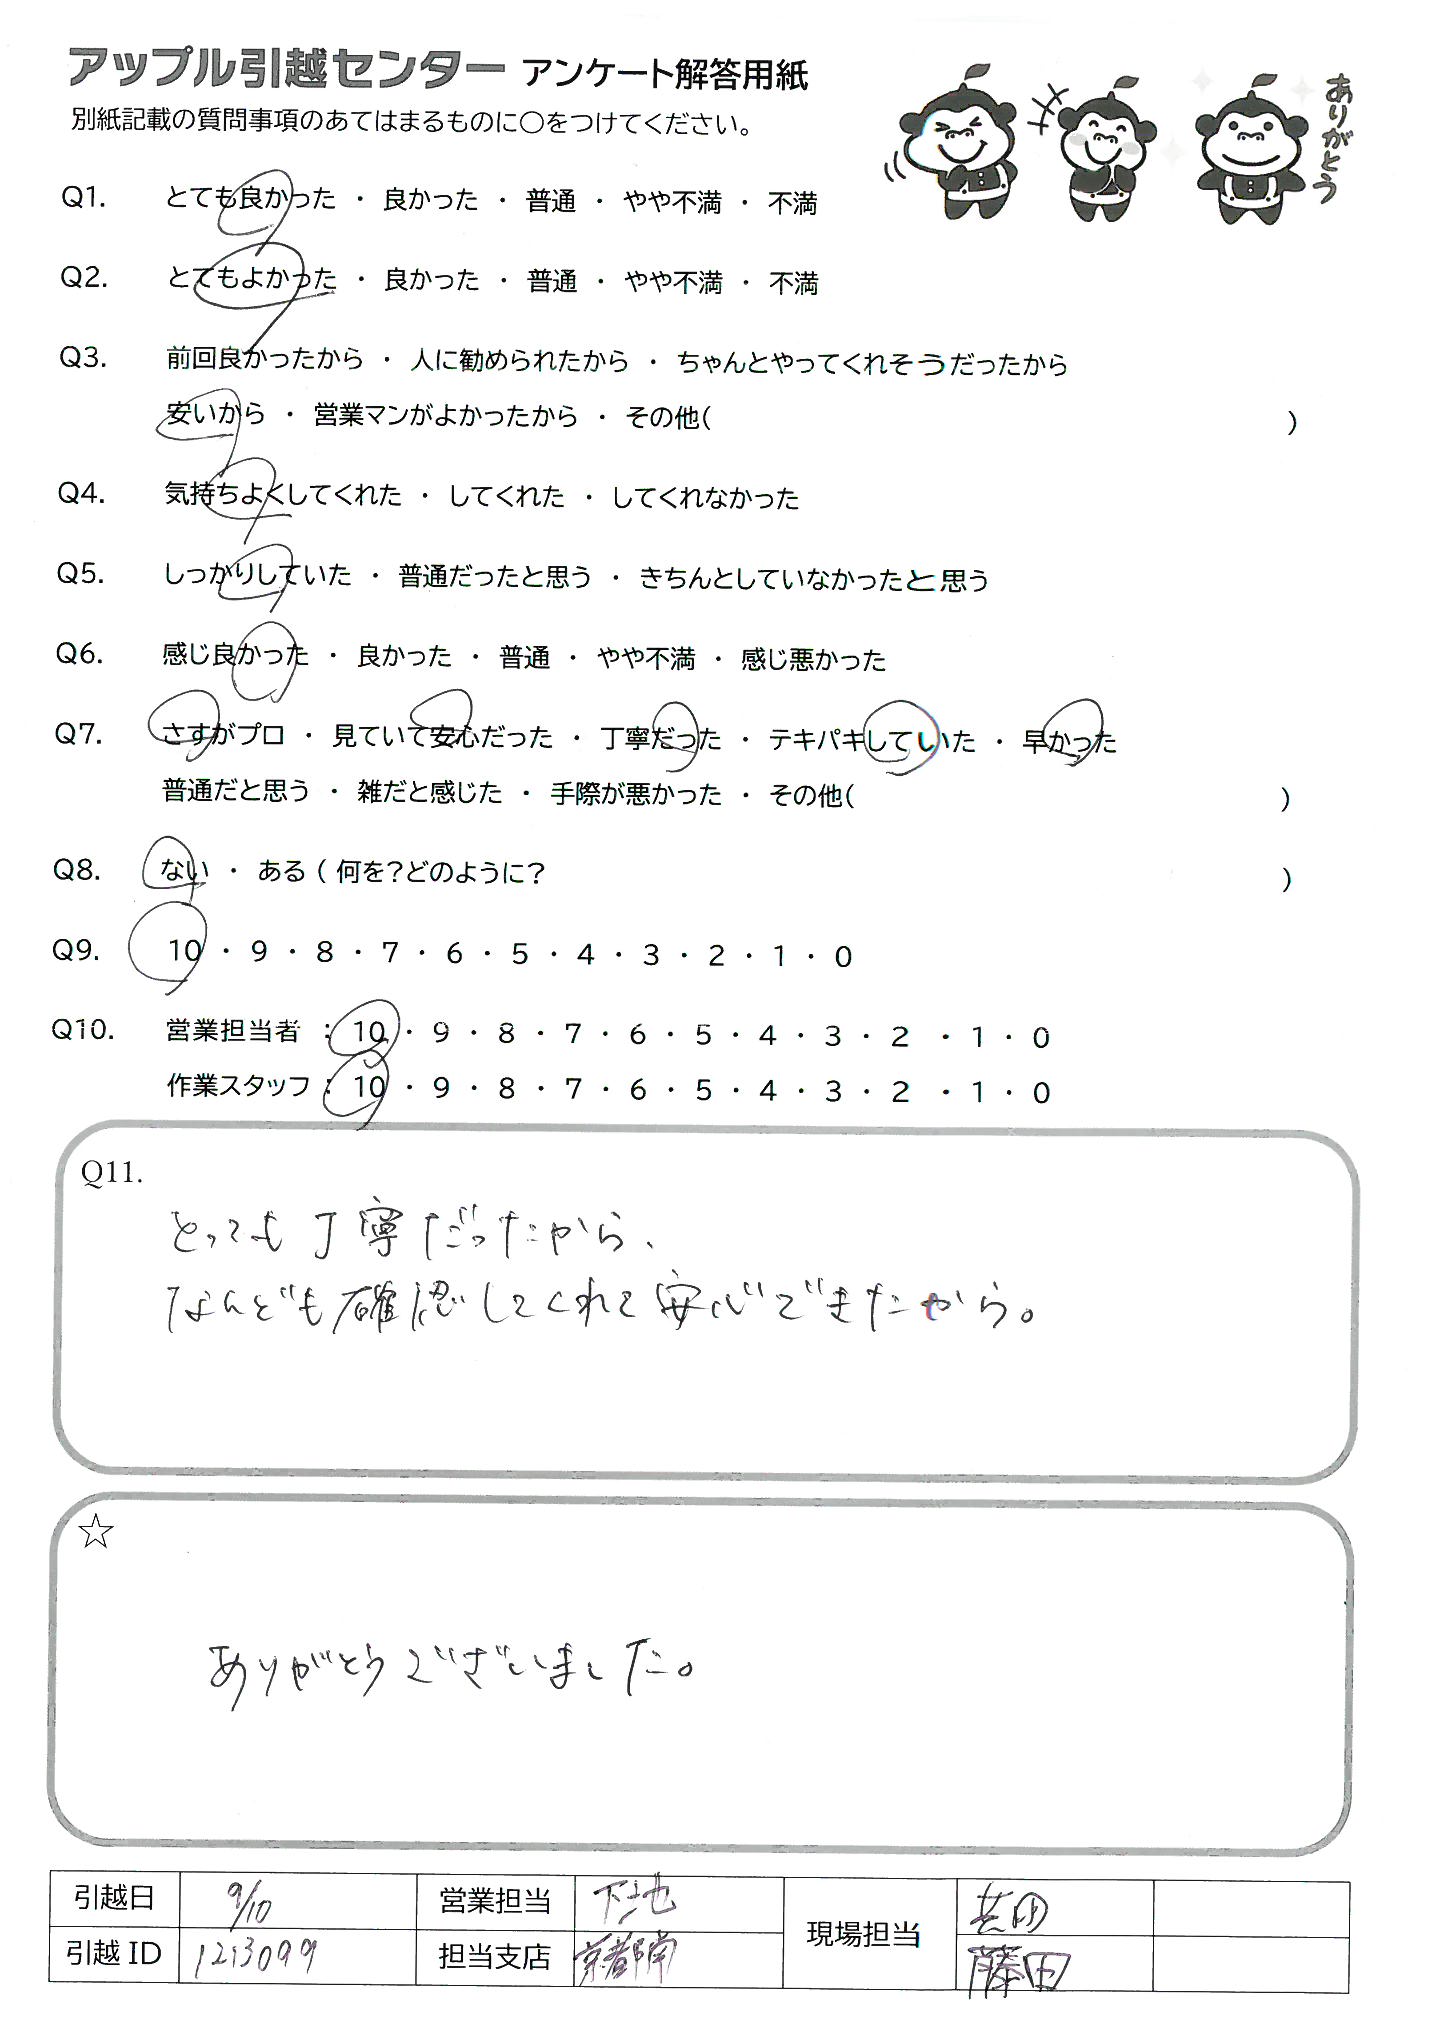 アップル引越センター アンケート解答用紙
ありがとう
別紙記載の質問事項のあてはまるものに○をつけてください。
Q1. とても良かった ・ 良かった ・ 普通 ・ やや不満 ・ 不満
Q2. とてもよかった ・ 良かった ・ 普通 ・ やや不満 ・ 不満
Q3. 前回良かったから ・ 人に勧められたから ・ ちゃんとやってくれそうだったから
安いから ・ 営業マンがよかったから ・ その他( )
Q4. 気持ちよくしてくれた ・ してくれた ・ してくれなかった
Q5. しっかりしていた ・ 普通だったと思う ・ きちんとしていなかったと思う
Q6. 感じ良かった ・ 良かった ・ 普通 ・ やや不満 ・ 感じ悪かった
Q7. さすがプロ ・ 見ていて安心だった ・ 丁寧だった ・ テキパキしていた ・ 早かった
普通だと思う ・ 雑だと感じた ・ 手際が悪かった ・ その他( )
Q8. ない ・ ある ( 何を?どのように? )
Q9. 10 ・ 9 ・ 8 ・ 7 ・ 6 ・ 5 ・ 4 ・ 3 ・ 2 ・ 1 ・ 0
Q10. 営業担当者 : 10 ・ 9 ・ 8 ・ 7 ・ 6 ・ 5 ・ 4 ・ 3 ・ 2 ・ 1 ・ 0
作業スタッフ : 10 ・ 9 ・ 8 ・ 7 ・ 6 ・ 5 ・ 4 ・ 3 ・ 2 ・ 1 ・ 0
Q11.
とっても丁寧だったから、
なんども確認してくれて安心できたから。
☆
ありがとうございました。
引越日 9/10 営業担当 下地 現場担当
引越ID 1213099 担当支店 京都南 藤田